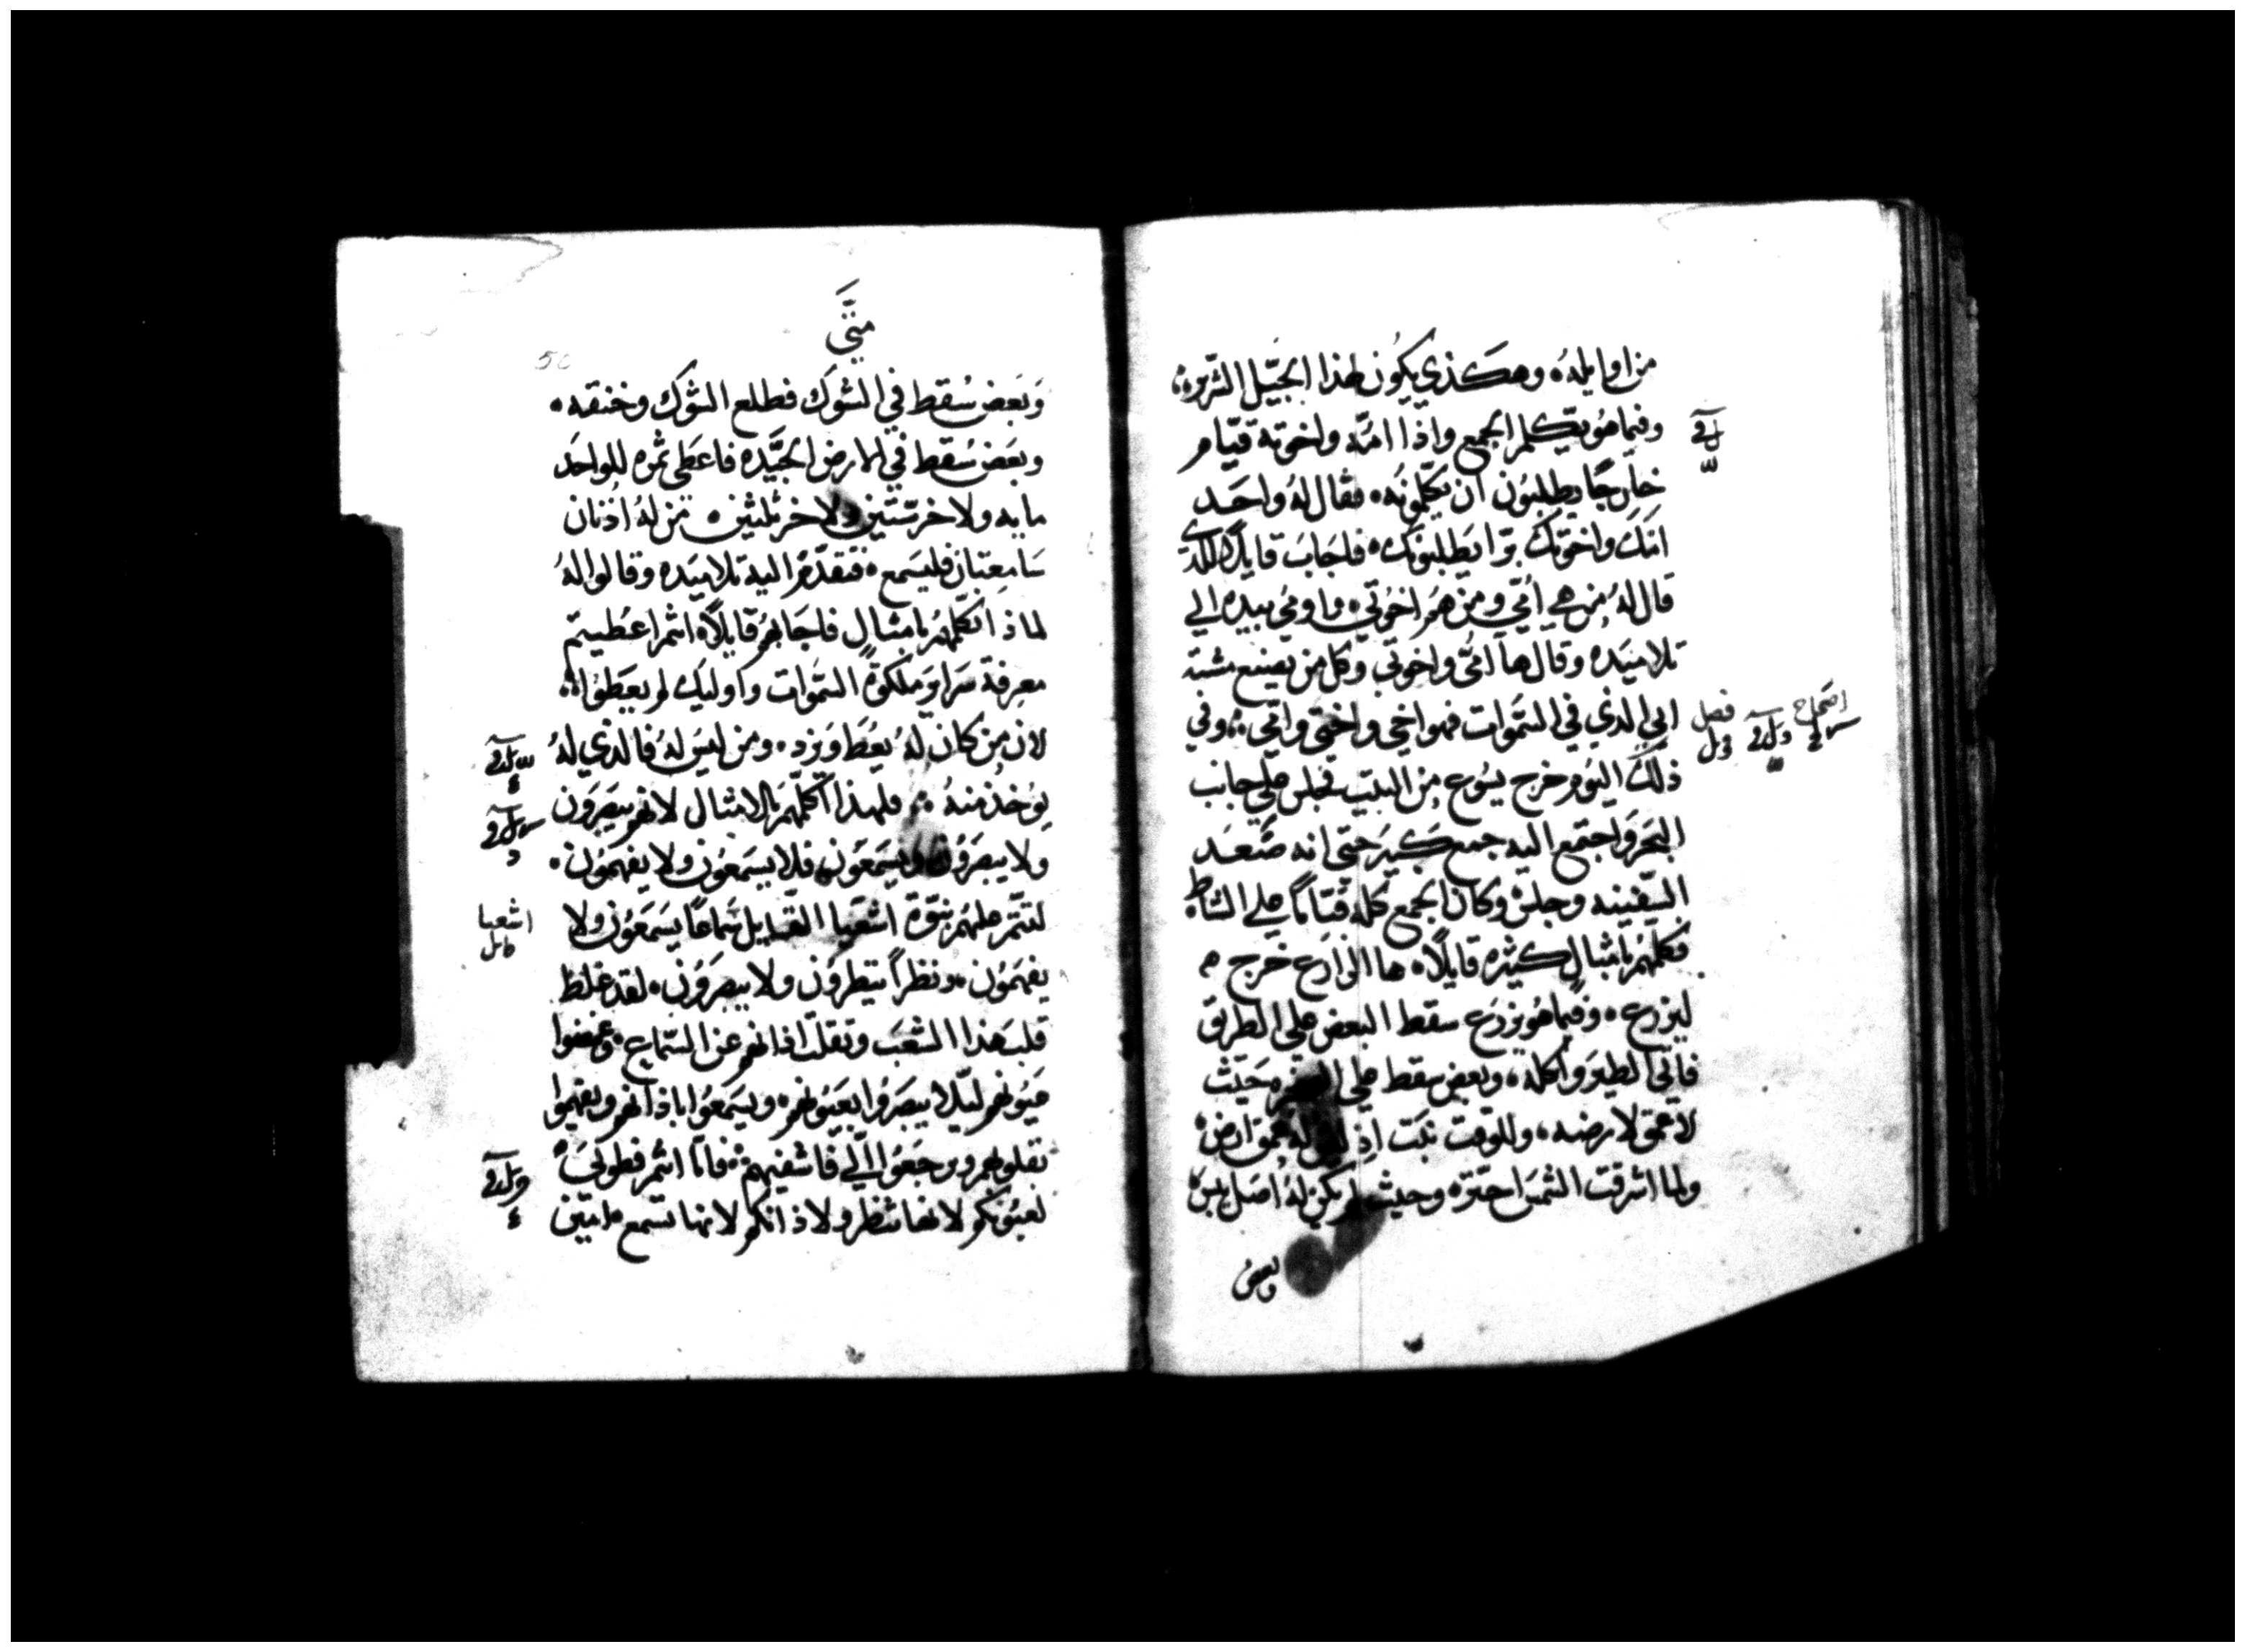 من اوايله۰ وهكذي يكون لهذا الجيل الشرير۰
وفيما هو يتكلم الجمع واذا امه واخوته قيام
خارجًا يطلبون ان يكلمونه۰ فقال له واحد
امك واخوتك برّا يطلبونك۰ فاجاب قايلًا للذي
قال له من هي امي ومن هم اخوتي۰ واومي بيده الي
تلاميده وقال ها امي واخوتي وكل من يصنع مشية
ابي الذي في السموات فهو اخي واختي وامي۰ وفي
اصحاح
فصل
ذلك اليوم خرج يسوع من البيت فجلس علي جانب
البحر واجتمع اليه جمع كبير حتي انه صعد
السفينه وجلس۰ وكان الجمع كله قيامًا علي الشاط
فكلمهم بامثال كثيره قايلًا۰ ها الزارع خرج
ليزرع۰ وفيما هو يزرع سقط البعض علي الطريق
فاتي الطير واكله۰ وبعض سقط علي الصخره حيث
لا عمق لارضه۰ وللوقت نبت اذ ليس له عمق ارض۰
ولما اشرقت الشمس احترّ۰ وحيث لم يكن له اصل يبس۰
وبعض
متَّي
50
وبعض سقط في الشوك فطلع الشوك وخنقه۰
وبعض سقط في الارض الجيّده فاعطي ثمره للواحد
مايه ولاخر ستين ولاخر ثلثين۰ من له اذنان
سامعتان فليسمع۰ فتقدّم اليه تلاميده وقالوا له
لماذا تكلمهم بامثال فاجابهم قايلًا۰ انتم اعطيتم
معرفة سراير ملكوة السموات واوليك لم يعطوا۰
لان من كان له يعط ويزد۰ ومن ليس له فالذي له
يوخذ منه۰ فلهذا اكلّمهم بالامثال لانهم يبصرون
ولا يبصرون ويسمعون فلا يسمعون ولا يفهمون۰
لتتم عليهم نبوّة اشعيا القايل سَماعًا يسمعون ولا
اشعيا
يفهمون۰ ونظرًا ينظرون ولا يبصرون۰ لقد غلظ
قلب هذا الشعب وثقلت اذانهم عن السماع۰ وغمضوا
عيونهم ليلا يبصروا بعيونهم۰ ويسمعوا باذانهم ويفهموا
بقلوبهم ويرجعوا اليّ فاشفيهم۰ فامّا انتم فطوبي
لعيونكم لانها تنظر ولاذانكم لانها تسمع۰ امين